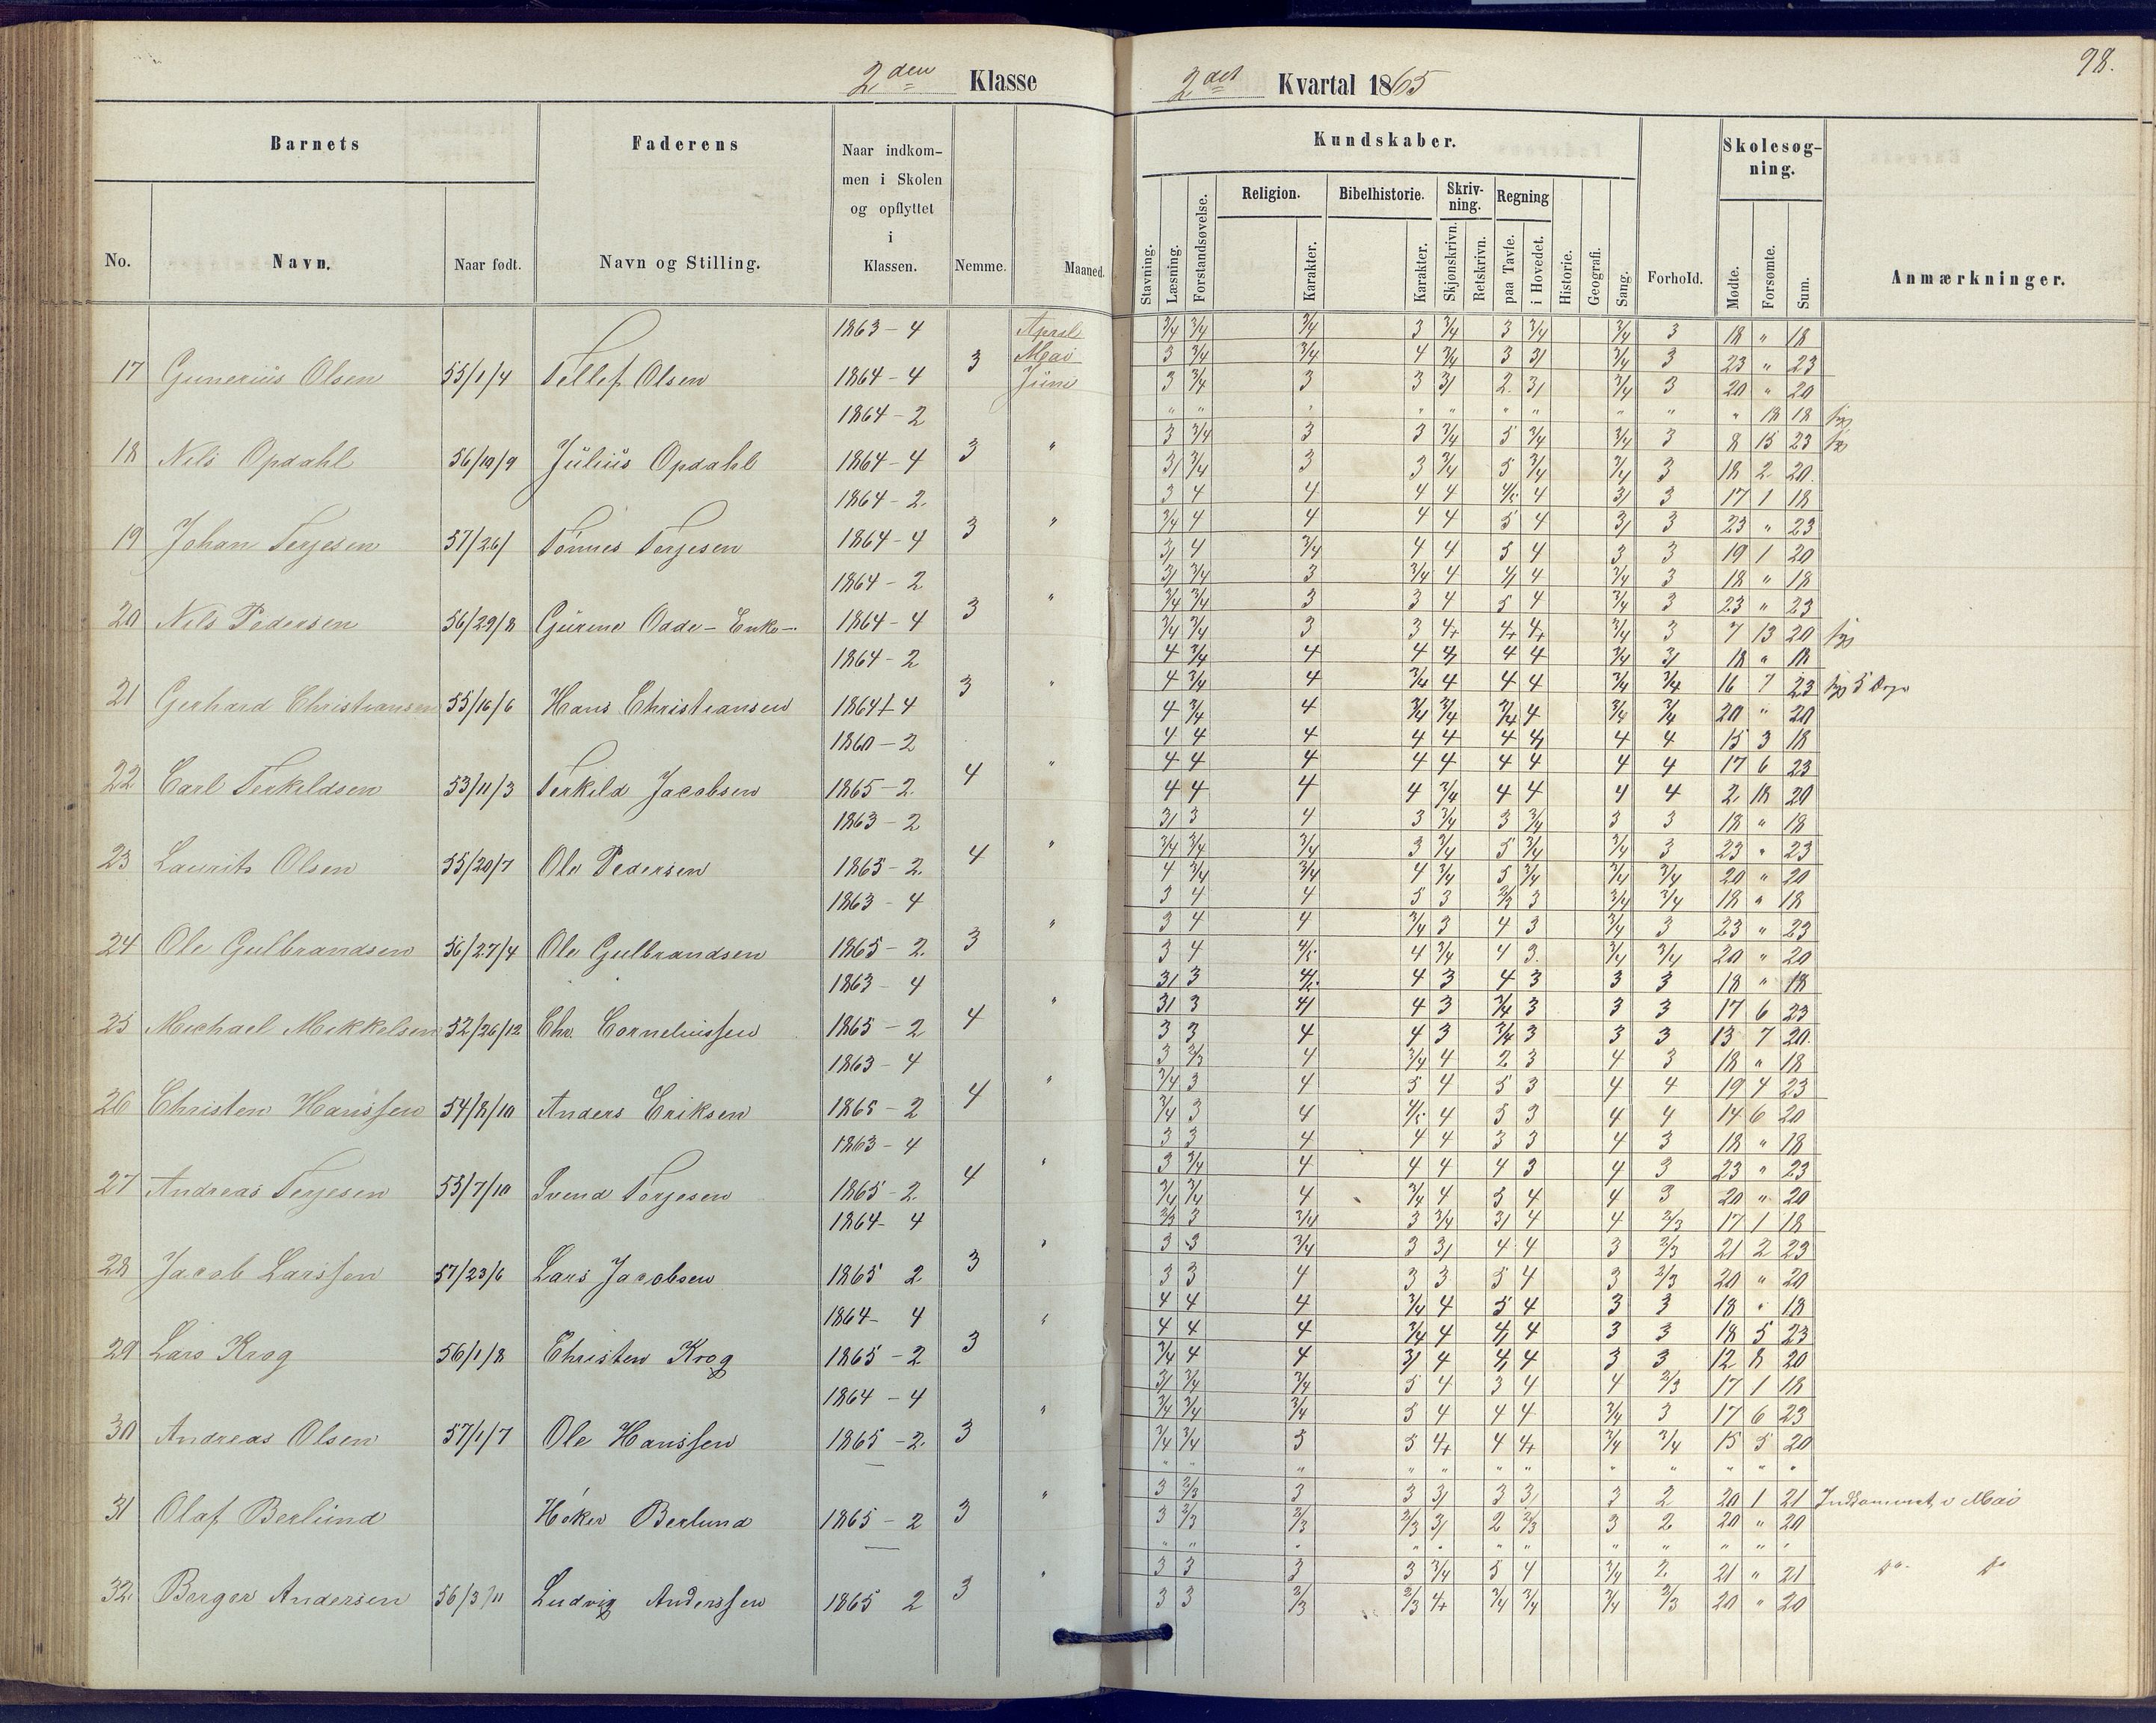 98.
2den Klasse 2det Kvartal 1865
Barnets Faderens Naar indkommen i Skolen og opflyttet i Klassen. Nemme. Maaned. Kundskaber. Forhold. Skolesøgning. Anmærkninger.
No. Navn. Naar født. Navn og Stilling.
Stavning. Læsning. Forstandsøvelse. Religion. Karakter. Bibelhistorie. Karakter. Skrivning. Skjønskrivn. Retskrivn. Regning paa Tavle. i Hovedet. Historie. Geografi. Sang. Mødte. Forsømte. Sum.
1863-4 April 3/4 3/4 3/4 3 3/4 3 3/4 3/4 3 18 " 18
3 Mai 3 3/4 3/4 4 3/4 3 31 3/4 3 23 " 23
17 Gunerius Olsen 55/1/4 Tellef Olsen 1864-4 Juni 3 3/4 3 3 31 2 31 3/4 3 20 " 20
1864-2 " 18 18
3 " 3 3/4 3 3 3/4 5 3/4 3/4 3 8 15 23
18 Nils Opdahl 56/10/9 Julius Opdahl 1864-4 31 3/4 3 3 3/4 5 3/4 3/4 3 18 2 20
1864-2 3 4 4 4 4 4/5 4 31 3 17 1 18
3 " 3/4 4 4 4 4 5 4 31 3 23 " 23
19 Johan Terjesen 57/26/ Tönnes Terjesen 1864-4 31 4 3/4 4 4 5 4 3 3 19 1 20
1864-2 31 3/4 3 3/4 4 4 4 3/4 3 18 " 18
3 " 3/4 3/4 3 3 4 5 4 3/4 3 23 " 23
20 Nils Pedersen 56/29/8 Gurine Odde-Enke- 1864-4 3/4 3/4 3 3 4+ 4+ 4+ 3/4 3 7 13 20
1864-2 4 3/4 4 4 4 4 4 3/4 31 18 " 18
3 " 4 3/4 4 3/4 4 4 4 3/4 3/4 16 7 23
21 Gerhard Christiansen 55/16/6 Hans Christiansen 1864-4 4 3/4 4 3/4 3/4 3/4 4 3/4 3/4 20 " 20
1860-2 4 4 4 4 4 4 4 4 4 15 3 18
4 " 4 4 4 4 4 4 4 4 4 17 6 23
22 Carl Terkildsen 53/11/3 Terkild Jacobsen 1865-2 4 4 4 4 3/4 4 4 4 4 2 18 20
1863-2 31 3 4 3 3/4 3 3/4 3 3 18 " 18
4 " 3/4 3/4 3/4 3 3/4 5 3/4 3/4 3 23 " 23
23 Laurits Olsen 55/20/7 Ole Pedersen 1865-2 4 3/4 3/4 4 3/4 5 3/4 3/4 3/4 20 " 20
1863-4 3 4 4 5 3 2/3 3 3/4 3/4 18 " 18
3 " 3 4 4 3/4 3 4 3 3/4 3 23 " 23
24 Ole Gulbrandsen 56/27/4 Ole Gulbrandsen 1865-2 3 4 4/5 4 3/4 4 3 3/4 3/4 20 " 20
1863-4 31 3 4/5 4 3 4 3 3 3 18 " 18
4 " 31 3 41 4 3 3/4 3 3 3 17 6 23
25 Michael Mikkelsen 52/26/12 Chr. Corneliussen 1865-2 3 3 4 4 3 3/4 3 3 3 13 7 20
1863-4 3 2/3 4 3/4 4 2 3 4 3 18 " 18
4 " 3/4 3 4 5 4 5 3 4 4 19 4 23
26 Christen Hanssen 54/8/10 Anders Eriksen 1865-2 3/4 3 4 4/5 4 5 3 4 4 14 6 20
1863-4 3 3 4 4 4 3 3 4 3 18 " 18
4 " 3 3/4 4 4 4 4 3 4 3 23 " 23
27 Andreas Terjesen 53/7/10 Svend Terjesen 1865-2 3/4 3/4 4 3/4 4 5 4 4 3 20 " 20
1864-4 2/3 3 3/4 3 3/4 31 4 4 2/3 17 1 18
3 " 3 3 3/4 3 31 4 4 3 2/3 21 2 23
28 Jacob Larssen 57/23/6 Lars Jacobsen 1865 2 3 3 4 3 3 5 4 3 2/3 20 " 20
1864-4 4 4 4 3/4 4 5 4 3 3 18 " 18
3 " 4 4 4 3/4 4 4 4 3 3 18 5 23
29 Lars Krog 56/1/8 Christen Krog 1865-2 3/4 4 4 31 4 4 4 3 3 12 8 20
1864-4 31 3/4 3/4 5 4 3 4 4 2/3 17 1 18
3 " 3/4 3/4 3/4 5 4 4 4 3/4 3 17 6 23
30 Andreas Olsen 57/1/7 Ole Hanssen 1865-2 3/4 3/4 5 5 4+ 4 4+ 3/4 3/4 15 5 20
" " " " " " " " " " " "
3 " 3 2/3 3 3 31 3 31 3 2 20 1 21 Indkommet i Mai
31 Olaf Berlund Høker Berlund 1865-2 3 2/3 2/3 2/3 31 2 2/3 3 2 20 " 20
" " " " " " " " " " " "
3 " 3 3 3 3 3/4 5 4 3/4 2 21 " 21 do do
32 Berger Andersen 56/3/11 Ludvig Anderssen 1865 2 3 3 2/3 2/3 4+ 3/4 3/4 3/4 2/3 20 " 20